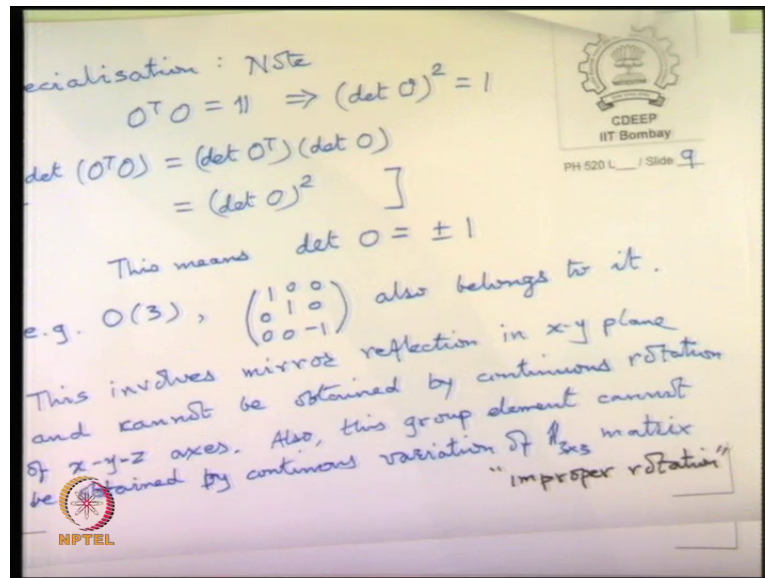 ecialisation : Note
OᵀO = 𝟙 ⇒ (det O)² = 1
det (OᵀO) = (det Oᵀ)(det O)
= (det O)² ]
This means det O = ± 1
e.g. O(3), (1 0 0
0 1 0
0 0 -1) also belongs to it.
This involves mirror reflection in x-y plane
and cannot be obtained by continuous rotation
of x-y-z axes. Also, this group element cannot
be obtained by continous variation of 𝟙₃ₓ₃ matrix
"improper rotation"
CDEEP
IIT Bombay
PH 520 L___ / Slide 9
NPTEL